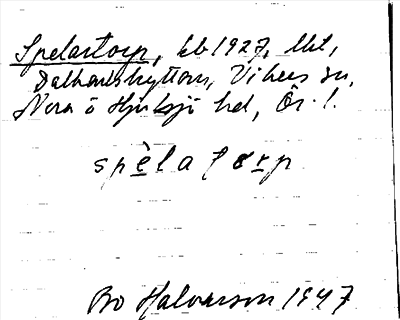 Spelartorp, kb 1927, lht,
Dalkarlshyttan, Vikers sn,
Nora o Hjulsjö hd, Ör. l.
spèlatorp
Bo Halvarson 1947